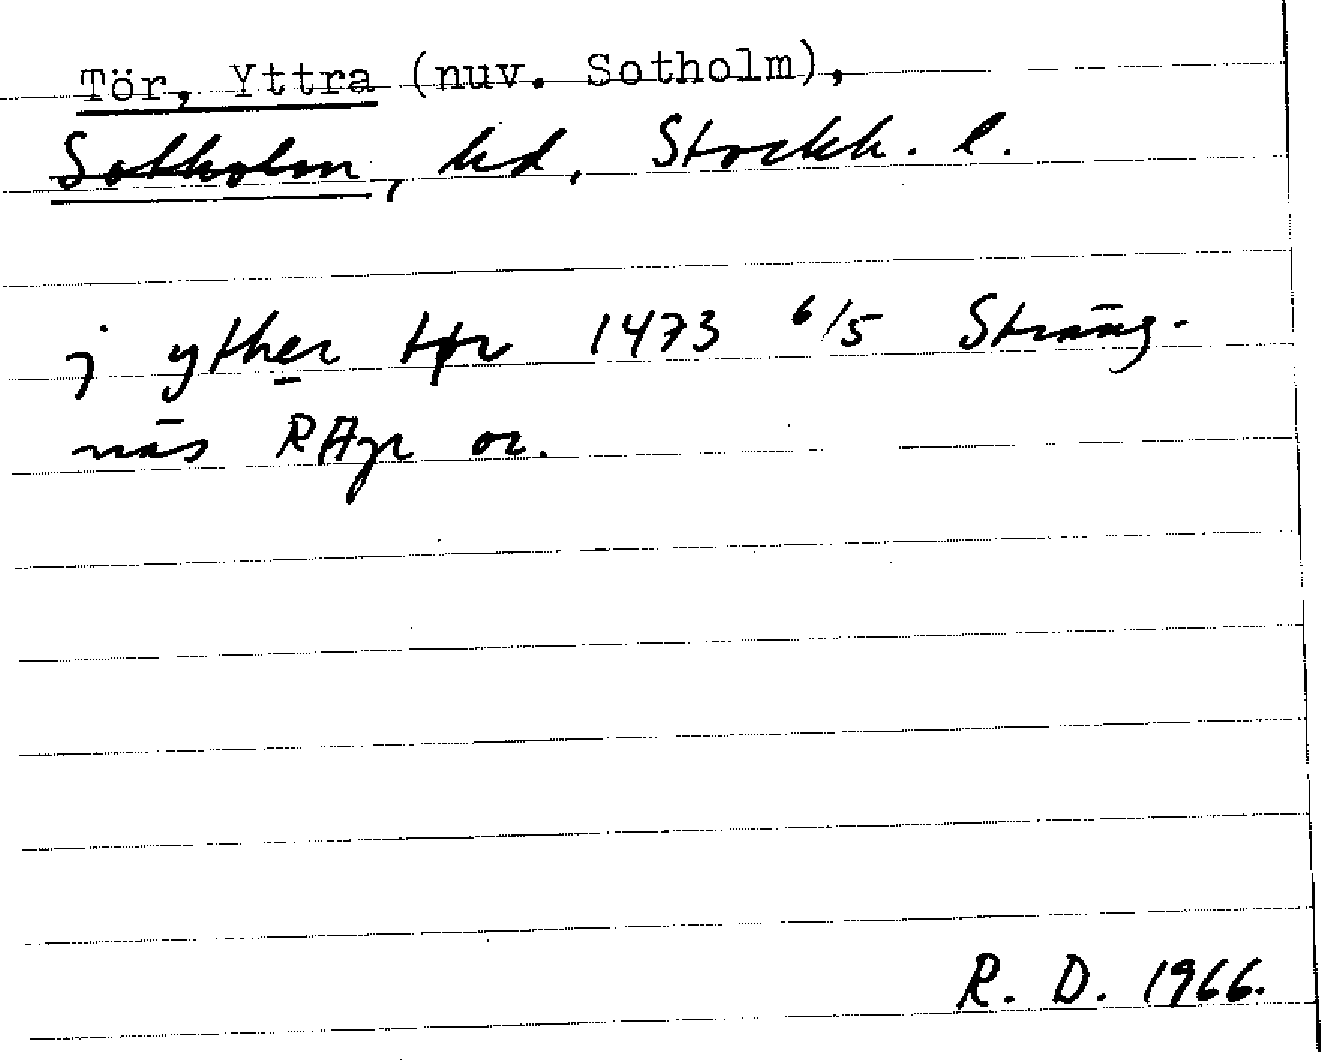 Tör, Yttra (nuv. Sotholm),
Sotholm, hd, Stockh. l.
j yther tør 1473 6/5 Sträng-
näs RApr or.
R. D. 1966.